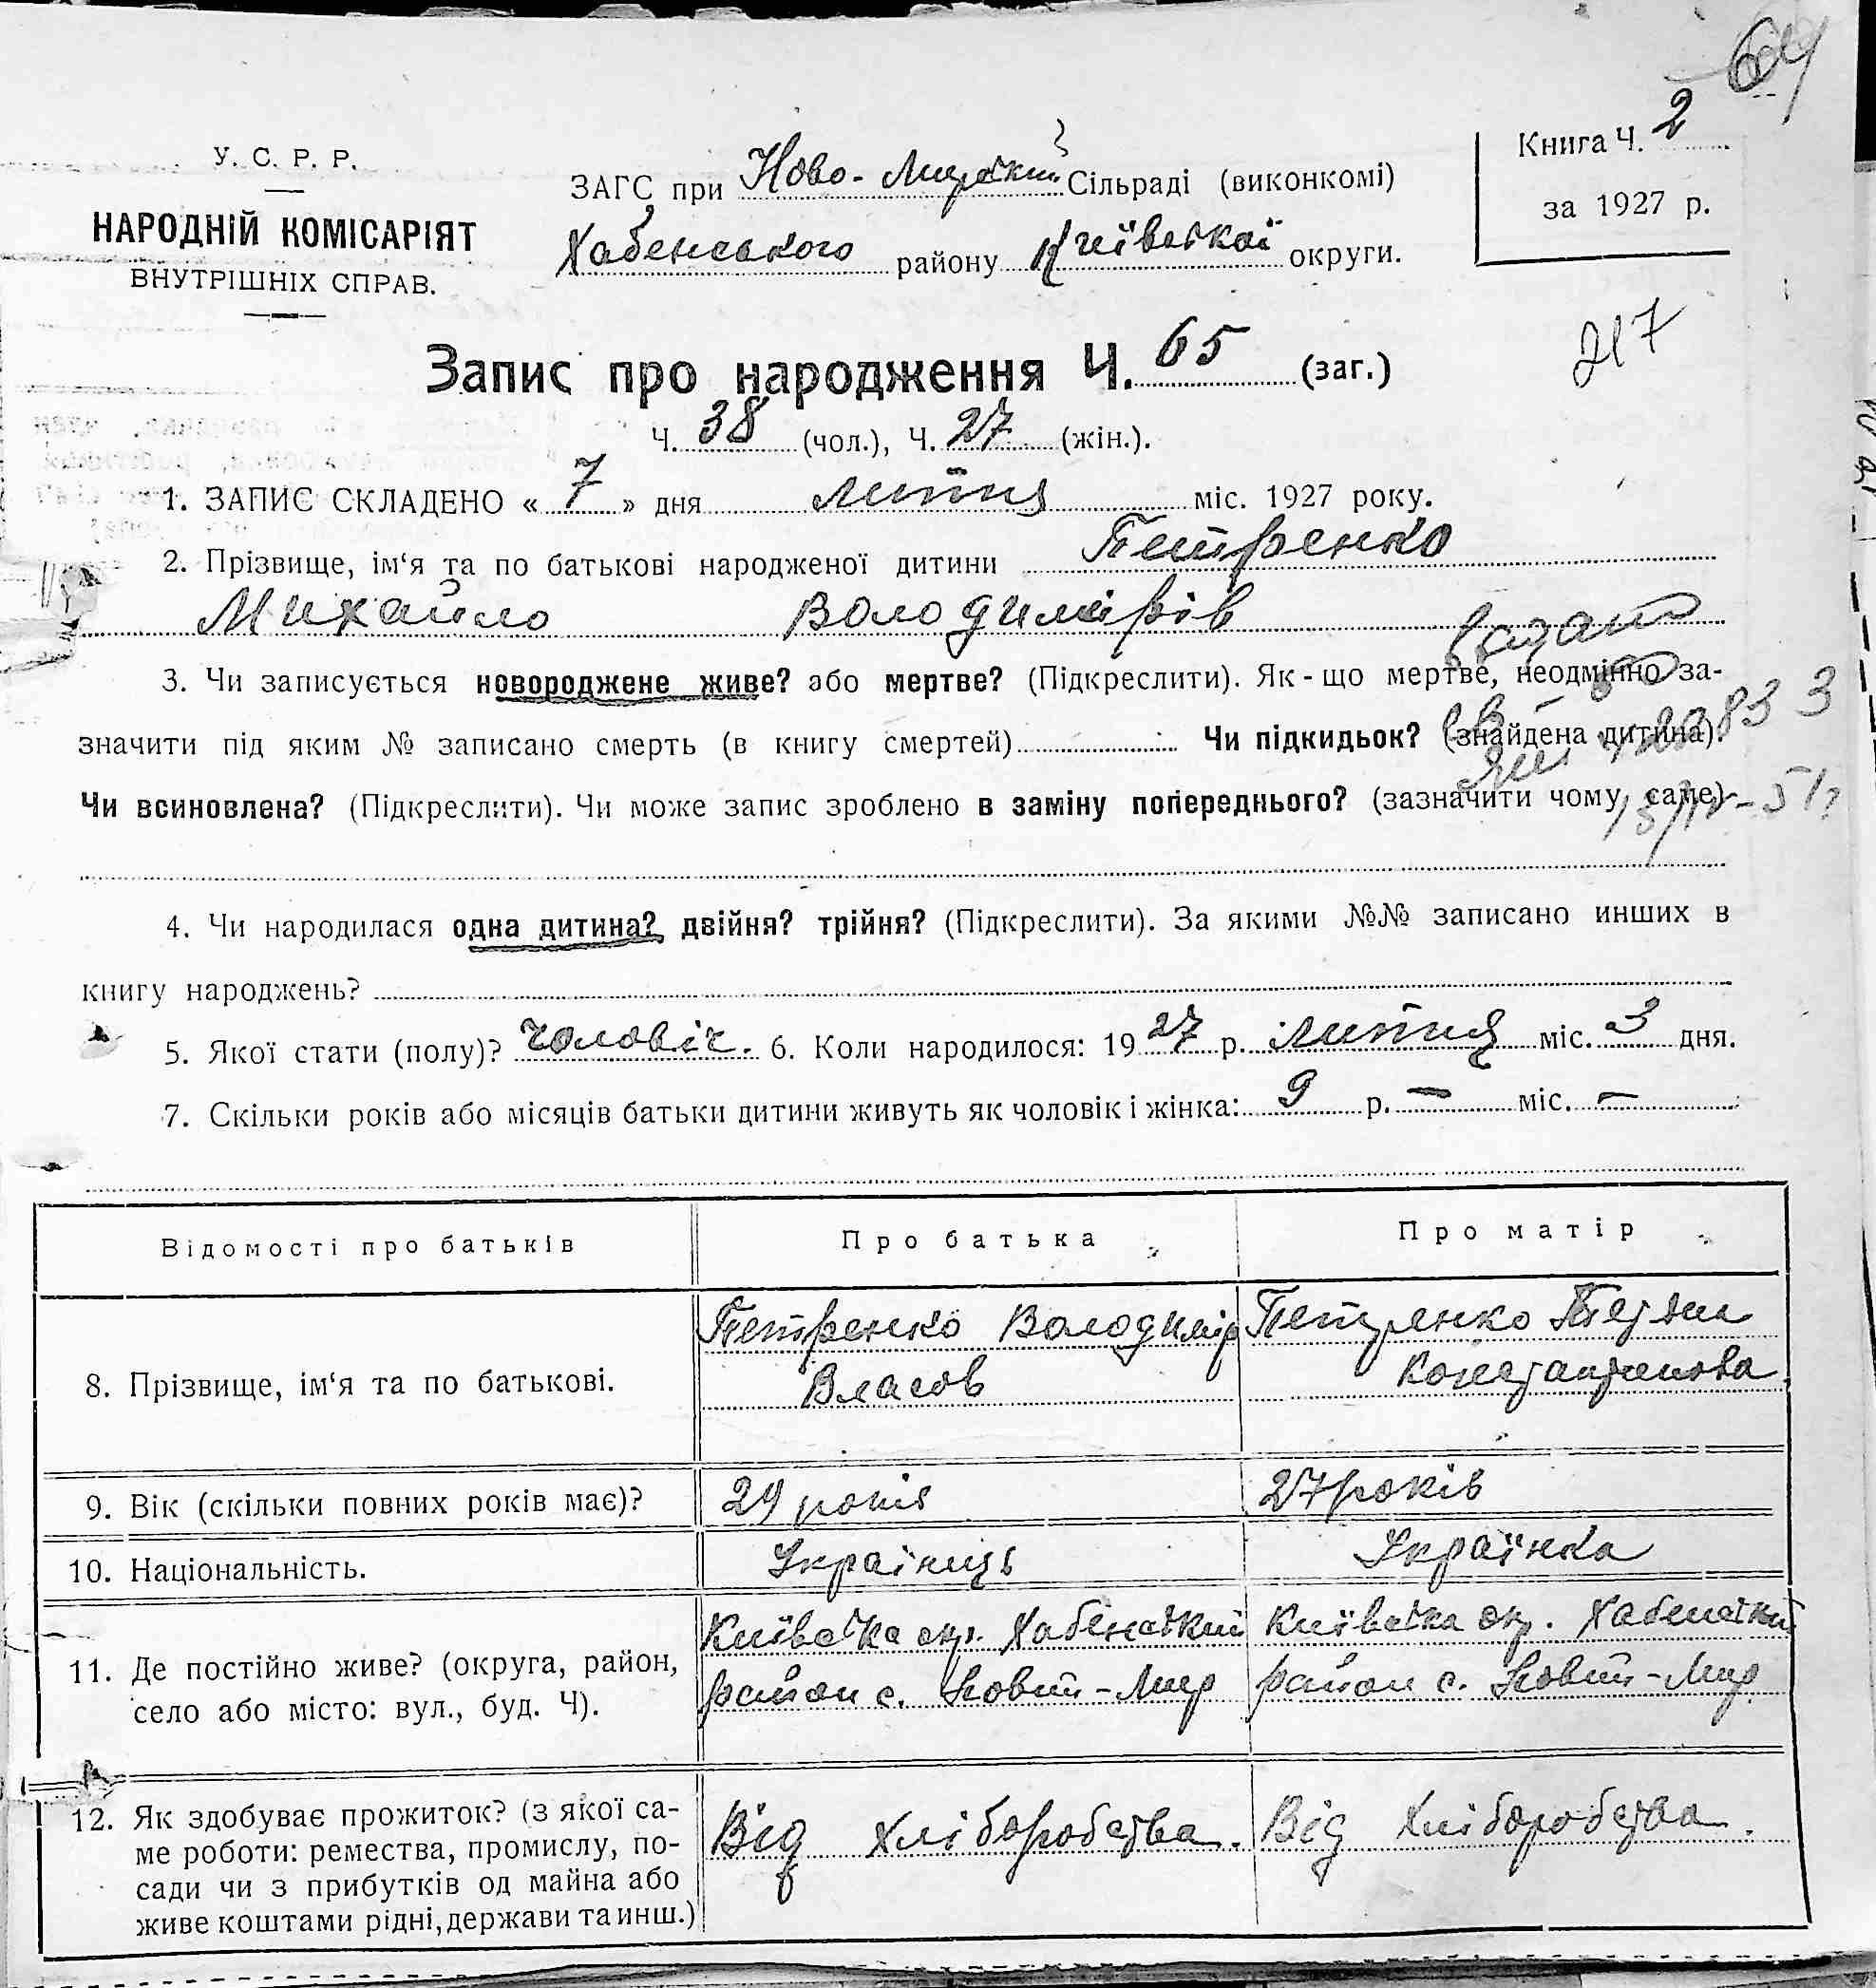 64
У. С. Р. Р.
НАРОДНІЙ КОМІСАРІЯТ
ВНУТРІШНІХ СПРАВ.
ЗАГС при Ново-Мирській Сільраді (виконкомі)
Хабенського району Київської округи.
Книга Ч. 2
за 1927 р.
217
Запис про народження Ч. 65 (заг.)
Ч. 38 (чол.), Ч. 27 (жін.).
1. ЗАПИС СКЛАДЕНО « 7 » дня липня міс. 1927 року.
2. Прізвище, ім‘я та по батькові народженої дитини Петренко
Михайло Володимирів
3. Чи записується новороджене живе? або мертве? (Підкреслити). Як-що мертве, неодмінно за-
значити під яким № записано смерть (в книгу смертей) Чи підкидьок? (знайдена дитина).
Чи всиновлена? (Підкреслити). Чи може запис зроблено в заміну попереднього? (зазначити чому саме)
4. Чи народилася одна дитина? двійня? трійня? (Підкреслити). За якими №№ записано инших в
книгу народжень?
5. Якої стати (полу)? чоловіч. 6. Коли народилося: 1927 р. липня міс. 3 дня.
7. Скільки років або місяців батьки дитини живуть як чоловік і жінка: 9 р. — міс. —
Відомості про батьків Про батька Про матір
8. Прізвище, ім‘я та по батькові.
Петренко Володимір
Власов
Петренко
Константинова
9. Вік (скільки повних років має)? 29 років 27 років
10. Національність. Українець Українка
11. Де постійно живе? (округа, район,
село або місто: вул., буд. Ч).
Київська окр. Хабенський
район с. Новий-Мир
Київська окр. Хабенський
район с. Новий-Мир
12. Як здобуває прожиток? (з якої са-
ме роботи: ремества, промислу, по-
сади чи з прибутків од майна або
живе коштами рідні, держави та инш.)
Від хліборобства.
Від хліборобства.